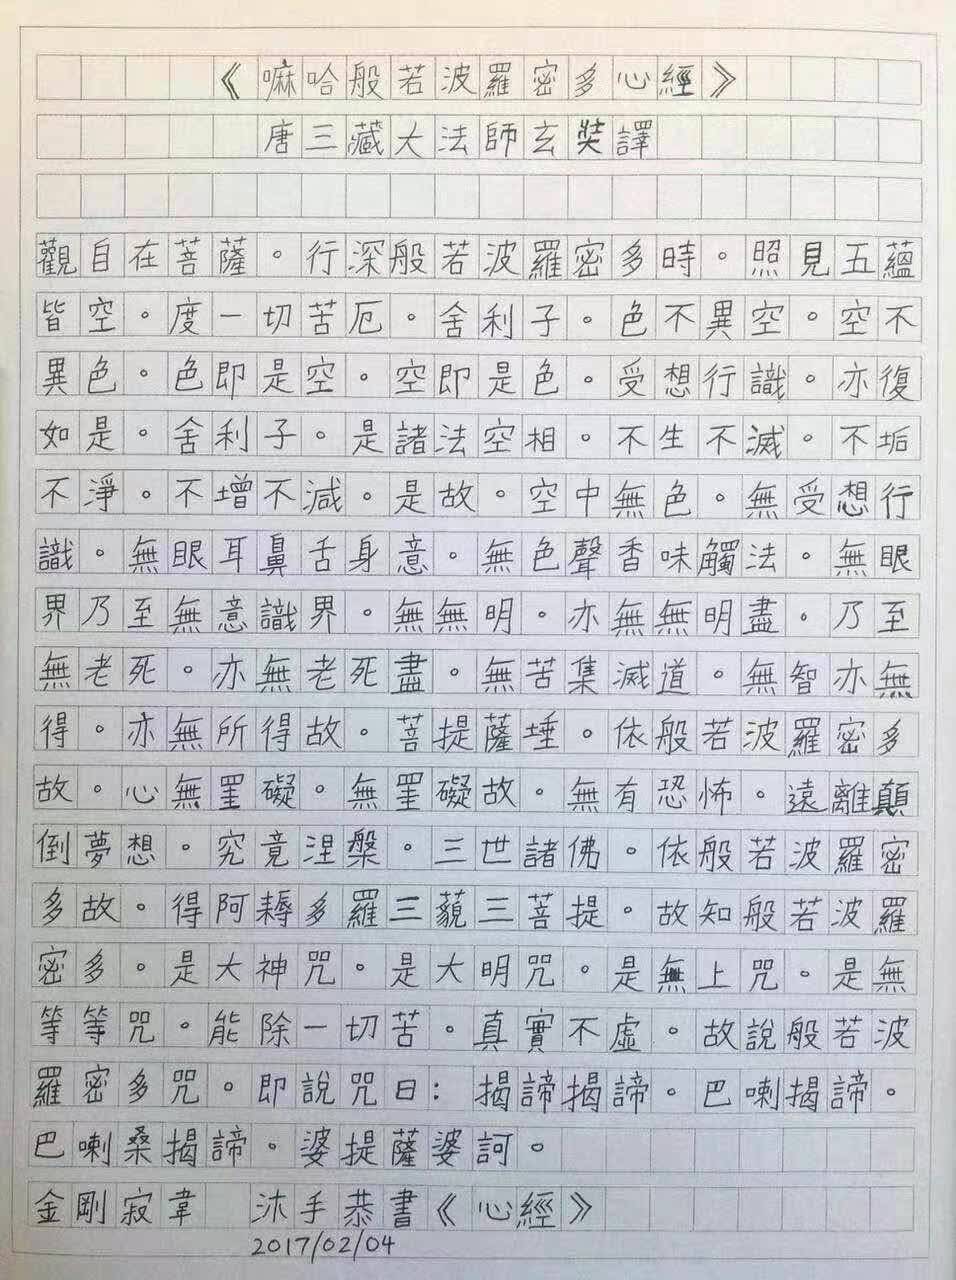 《嘛哈般若波羅密多心經》
唐三藏大法師玄奘譯
觀自在菩薩。行深般若波羅密多時。照見五蘊
皆空。度一切苦厄。舍利子。色不異空。空不
異色。色即是空。空即是色。受想行識。亦復
如是。舍利子。是諸法空相。不生不滅。不垢
不淨。不增不減。是故。空中無色。無受想行
識。無眼耳鼻舌身意。無色聲香味觸法。無眼
界乃至無意識界。無無明。亦無無明盡。乃至
無老死。亦無老死盡。無苦集滅道。無智亦無
得。亦無所得故。菩提薩埵。依般若波羅密多
故。心無罣礙。無罣礙故。無有恐怖。遠離顛
倒夢想。究竟涅槃。三世諸佛。依般若波羅密
多故。得阿耨多羅三藐三菩提。故知般若波羅
密多。是大神咒。是大明咒。是無上咒。是無
等等咒。能除一切苦。真實不虛。故說般若波
羅密多咒。即說咒曰：揭諦揭諦。巴喇揭諦。
巴喇桑揭諦。婆提薩婆訶。
金剛寂韋 沐手恭書《心經》
2017/02/04